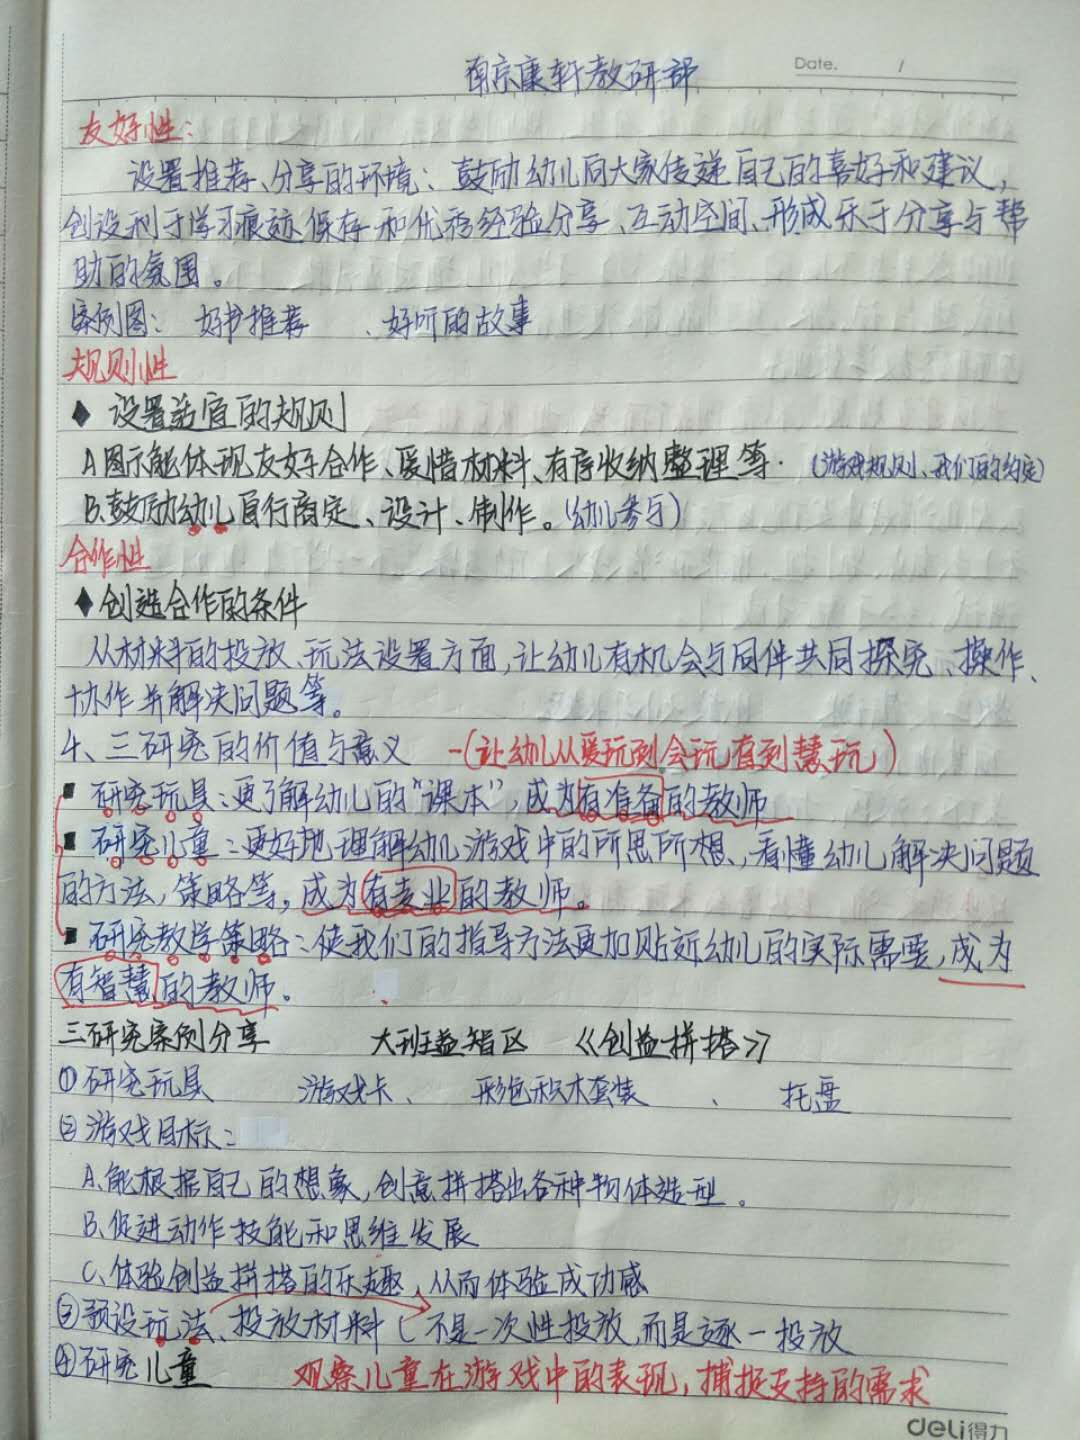 南京康轩教研部
Date. /
友好性:
设置推荐、分享的环境:鼓励幼儿向大家传递自己的喜好和建议,
创设利于学习痕迹保存和优秀经验分享、互动空间、形成乐于分享与帮
助的氛围。
案例图: 好书推荐 、好听的故事
规则性
◆ 设置适宜的规则
A图示能体现友好合作、爱惜材料、有序收纳整理等.(游戏规则、我们的约定)
B.鼓励幼儿自行商定、设计、制作。(幼儿参与)
合作性
◆创造合作的条件
从材料的投放、玩法设置方面,让幼儿有机会与同伴共同探究、操作、
协作并解决问题等。
4、三研究的价值与意义 -(让幼儿从爱玩到会玩有到慧玩)
■ 研究玩具:更了解幼儿的“课本”,成为有准备的教师
■ 研究儿童:更好地理解幼儿游戏中的所思所想、看懂幼儿解决问题
的方法,策略等,成为有专业的教师。
■ 研究教学策略:使我们的指导方法更加贴近幼儿的实际需要,成为
有智慧的教师。
三研究案例分享 大班益智区 《创益拼搭》
①研究玩具 游戏卡、 形色积木套装 、 托盘
②游戏目标:
A.能根据自己的想象,创意拼搭出各种物体造型。
B、促进动作技能和思维发展
C、体验创益拼搭的乐趣,从而体验成功感
③预设玩法、投放材料(不是一次性投放,而是逐一投放
④研究儿童 观察儿童在游戏中的表现,捕捉支持的需求
deli得力